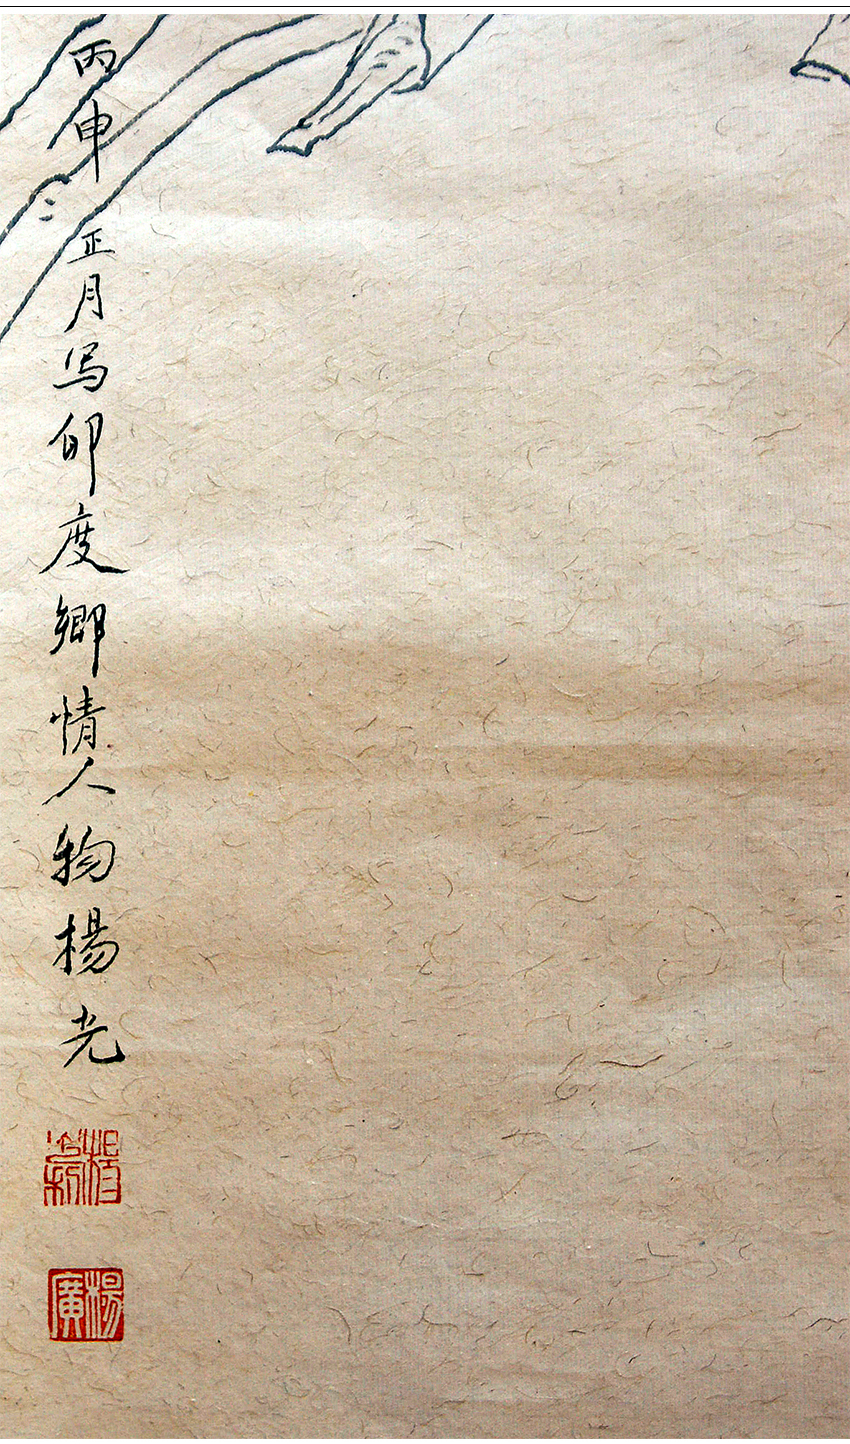 丙申正月写印度鄉情人物楊光
楊廣